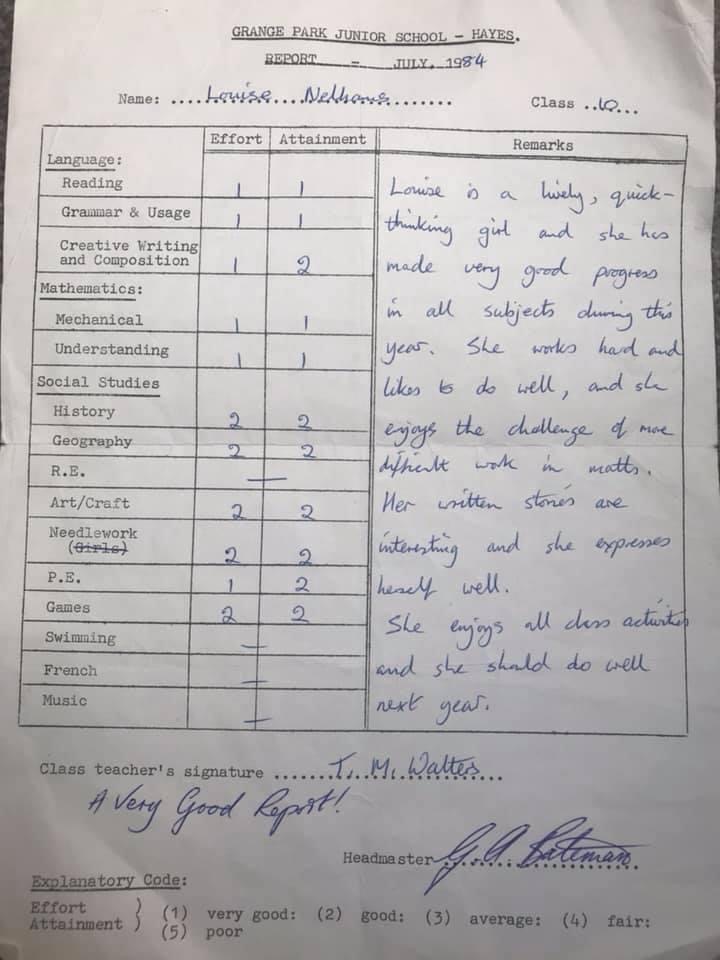 GRANGE PARK JUNIOR SCHOOL - HAYES.
REPORT - JULY, 1984
Name: ....Louise....Nelhams.......... Class ..10...
Effort Attainment Remarks
Language:
Reading 1 1
Grammar & Usage 1 1
Creative Writing
and Composition 1 2
Mathematics:
Mechanical 1 1
Understanding 1 1
Social Studies
History 2 2
Geography 2 2
R.E. —
Art/Craft 2 2
Needlework
(Girls) 2 2
P.E. 1 2
Games 2 2
Swimming —
French —
Music —
Louise is a lively, quick-
thinking girl and she has
made very good progress
in all subjects during this
year. She works hard and
likes to do well, and she
enjoys the challenge of more
difficult work in maths.
Her written stories are
interesting and she expresses
herself well.
She enjoys all class activities
and she should do well
next year.
Class teacher's signature .......T. M. Walters...
A Very Good Report!
Headmaster G. A. Bateman
Explanatory Code:
Effort ) (1) very good: (2) good: (3) average: (4) fair:
Attainment ) (5) poor